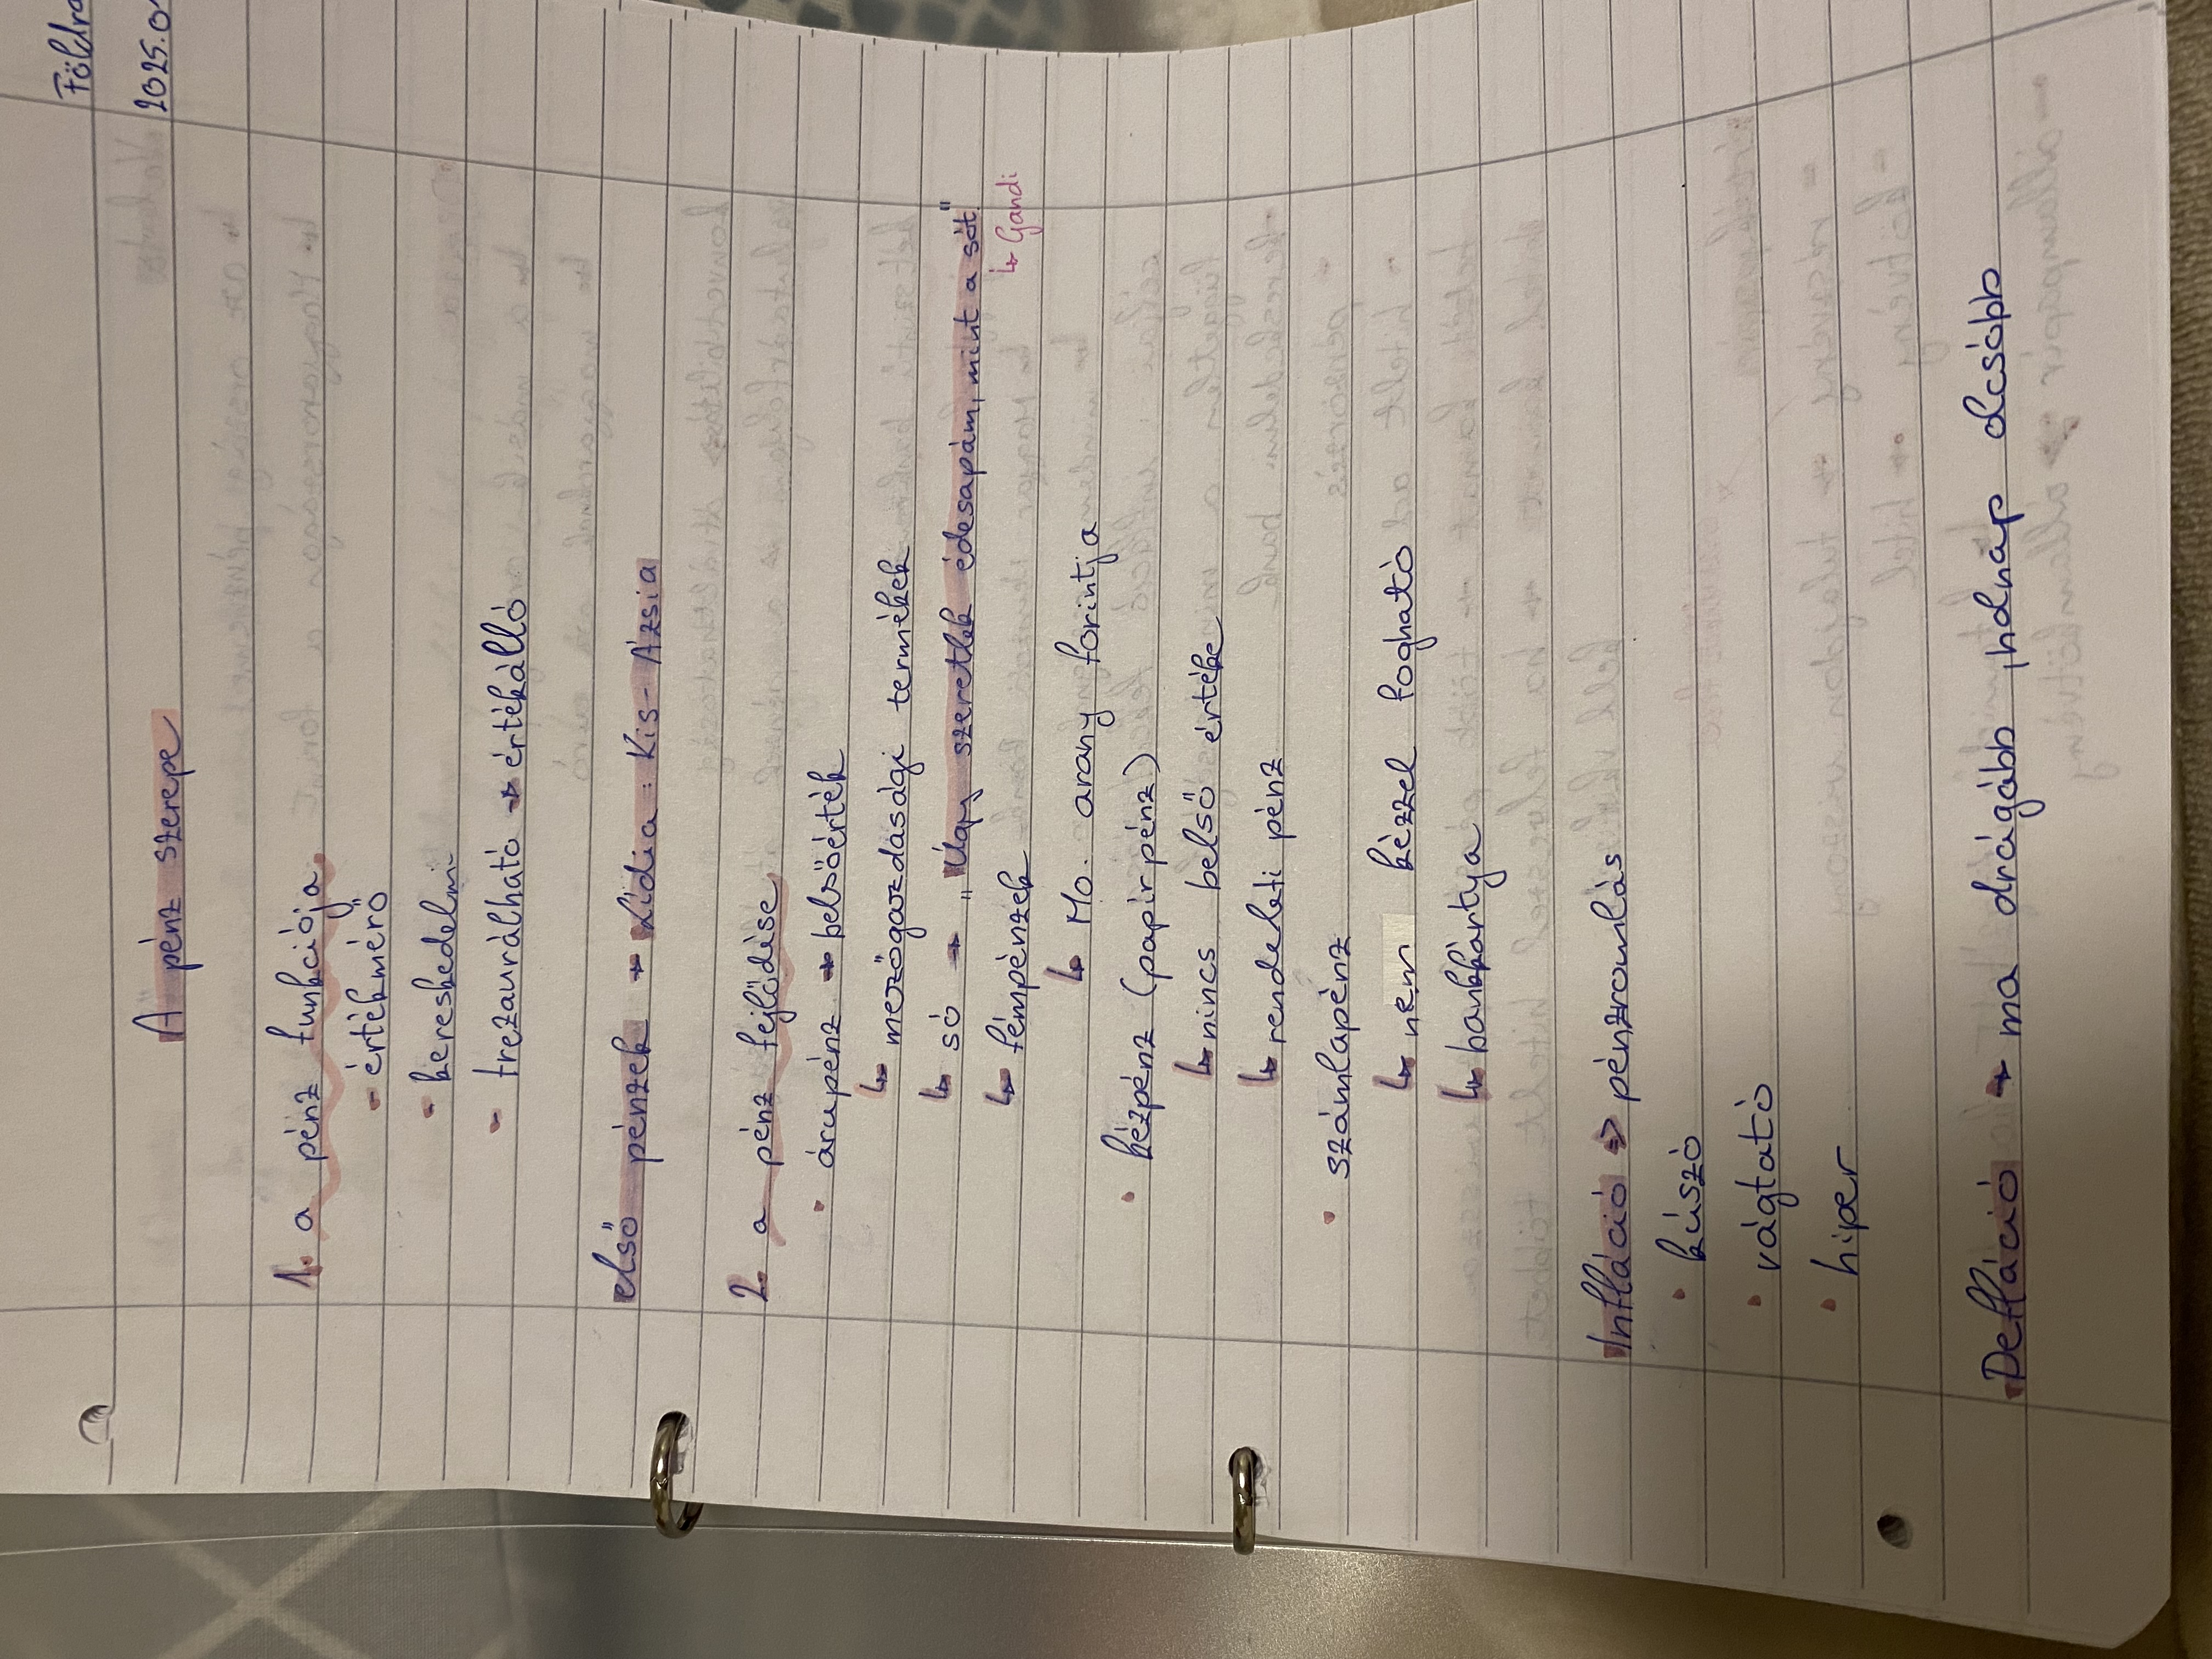 Földra
2025.0
A pénz szerepe
1. a pénz funkciója
- értékmérő
- kereskedelmi
- trezaurálható → értékálló
első pénzek → Lídia: Kis-Ázsia
2. a pénz fejlődése
• árupénz → belsőérték
↳ mezőgazdasági termékek
↳ só → „Úgy szeretlek édesapám, mint a sót."
↳ Gandi
↳ fémpénzek
↳ Mo. arany forintja
• kézpénz (papír pénz)
↳ nincs belső értéke
↳ rendeleti pénz
• számlapénz
↳ nem kézzel fogható
↳ bankkártya
Infláció => pénzromlás
• kúszó
• vágtató
• hiper
Defláció → ma drágább, holnap olcsóbb